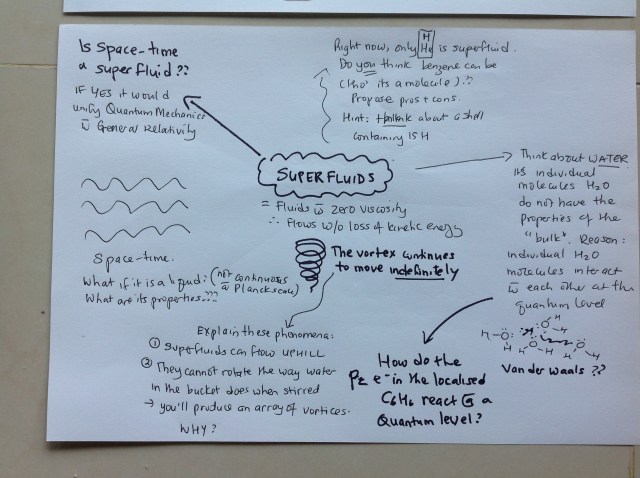 Is Space-time
a superfluid??
IF YES it would
unify Quantum Mechanics
w̄ General Relativity
Right now, only He is superfluid.
H
Do you think benzene can be
(tho' its a molecule)??
Propose pros + cons.
Hint: think about a shell
containing 15 H
SUPERFLUIDS
= Fluids w̄ zero viscosity
∴ Flows w/o loss of kinetic energy
The vortex continues
to move indefinitely
Space-time.
What if it is a liquid? (not continuous
What are its properties???
Planck scale)
Explain these phenomena:
① Superfluids can flow UPHILL
② They cannot rotate the way water
in the bucket does when stirred
→ you'll produce an array of vortices.
WHY?
Think about WATER
its individual
molecules H2O
do not have the
properties of the
"bulk". Reason:
individual H2O
molecules interact
w̄ each other at the
quantum level
H O H H O H H O H
Van der Waals ??
How do the
Pz e- in the localised
C6H6 react @ a
Quantum level?